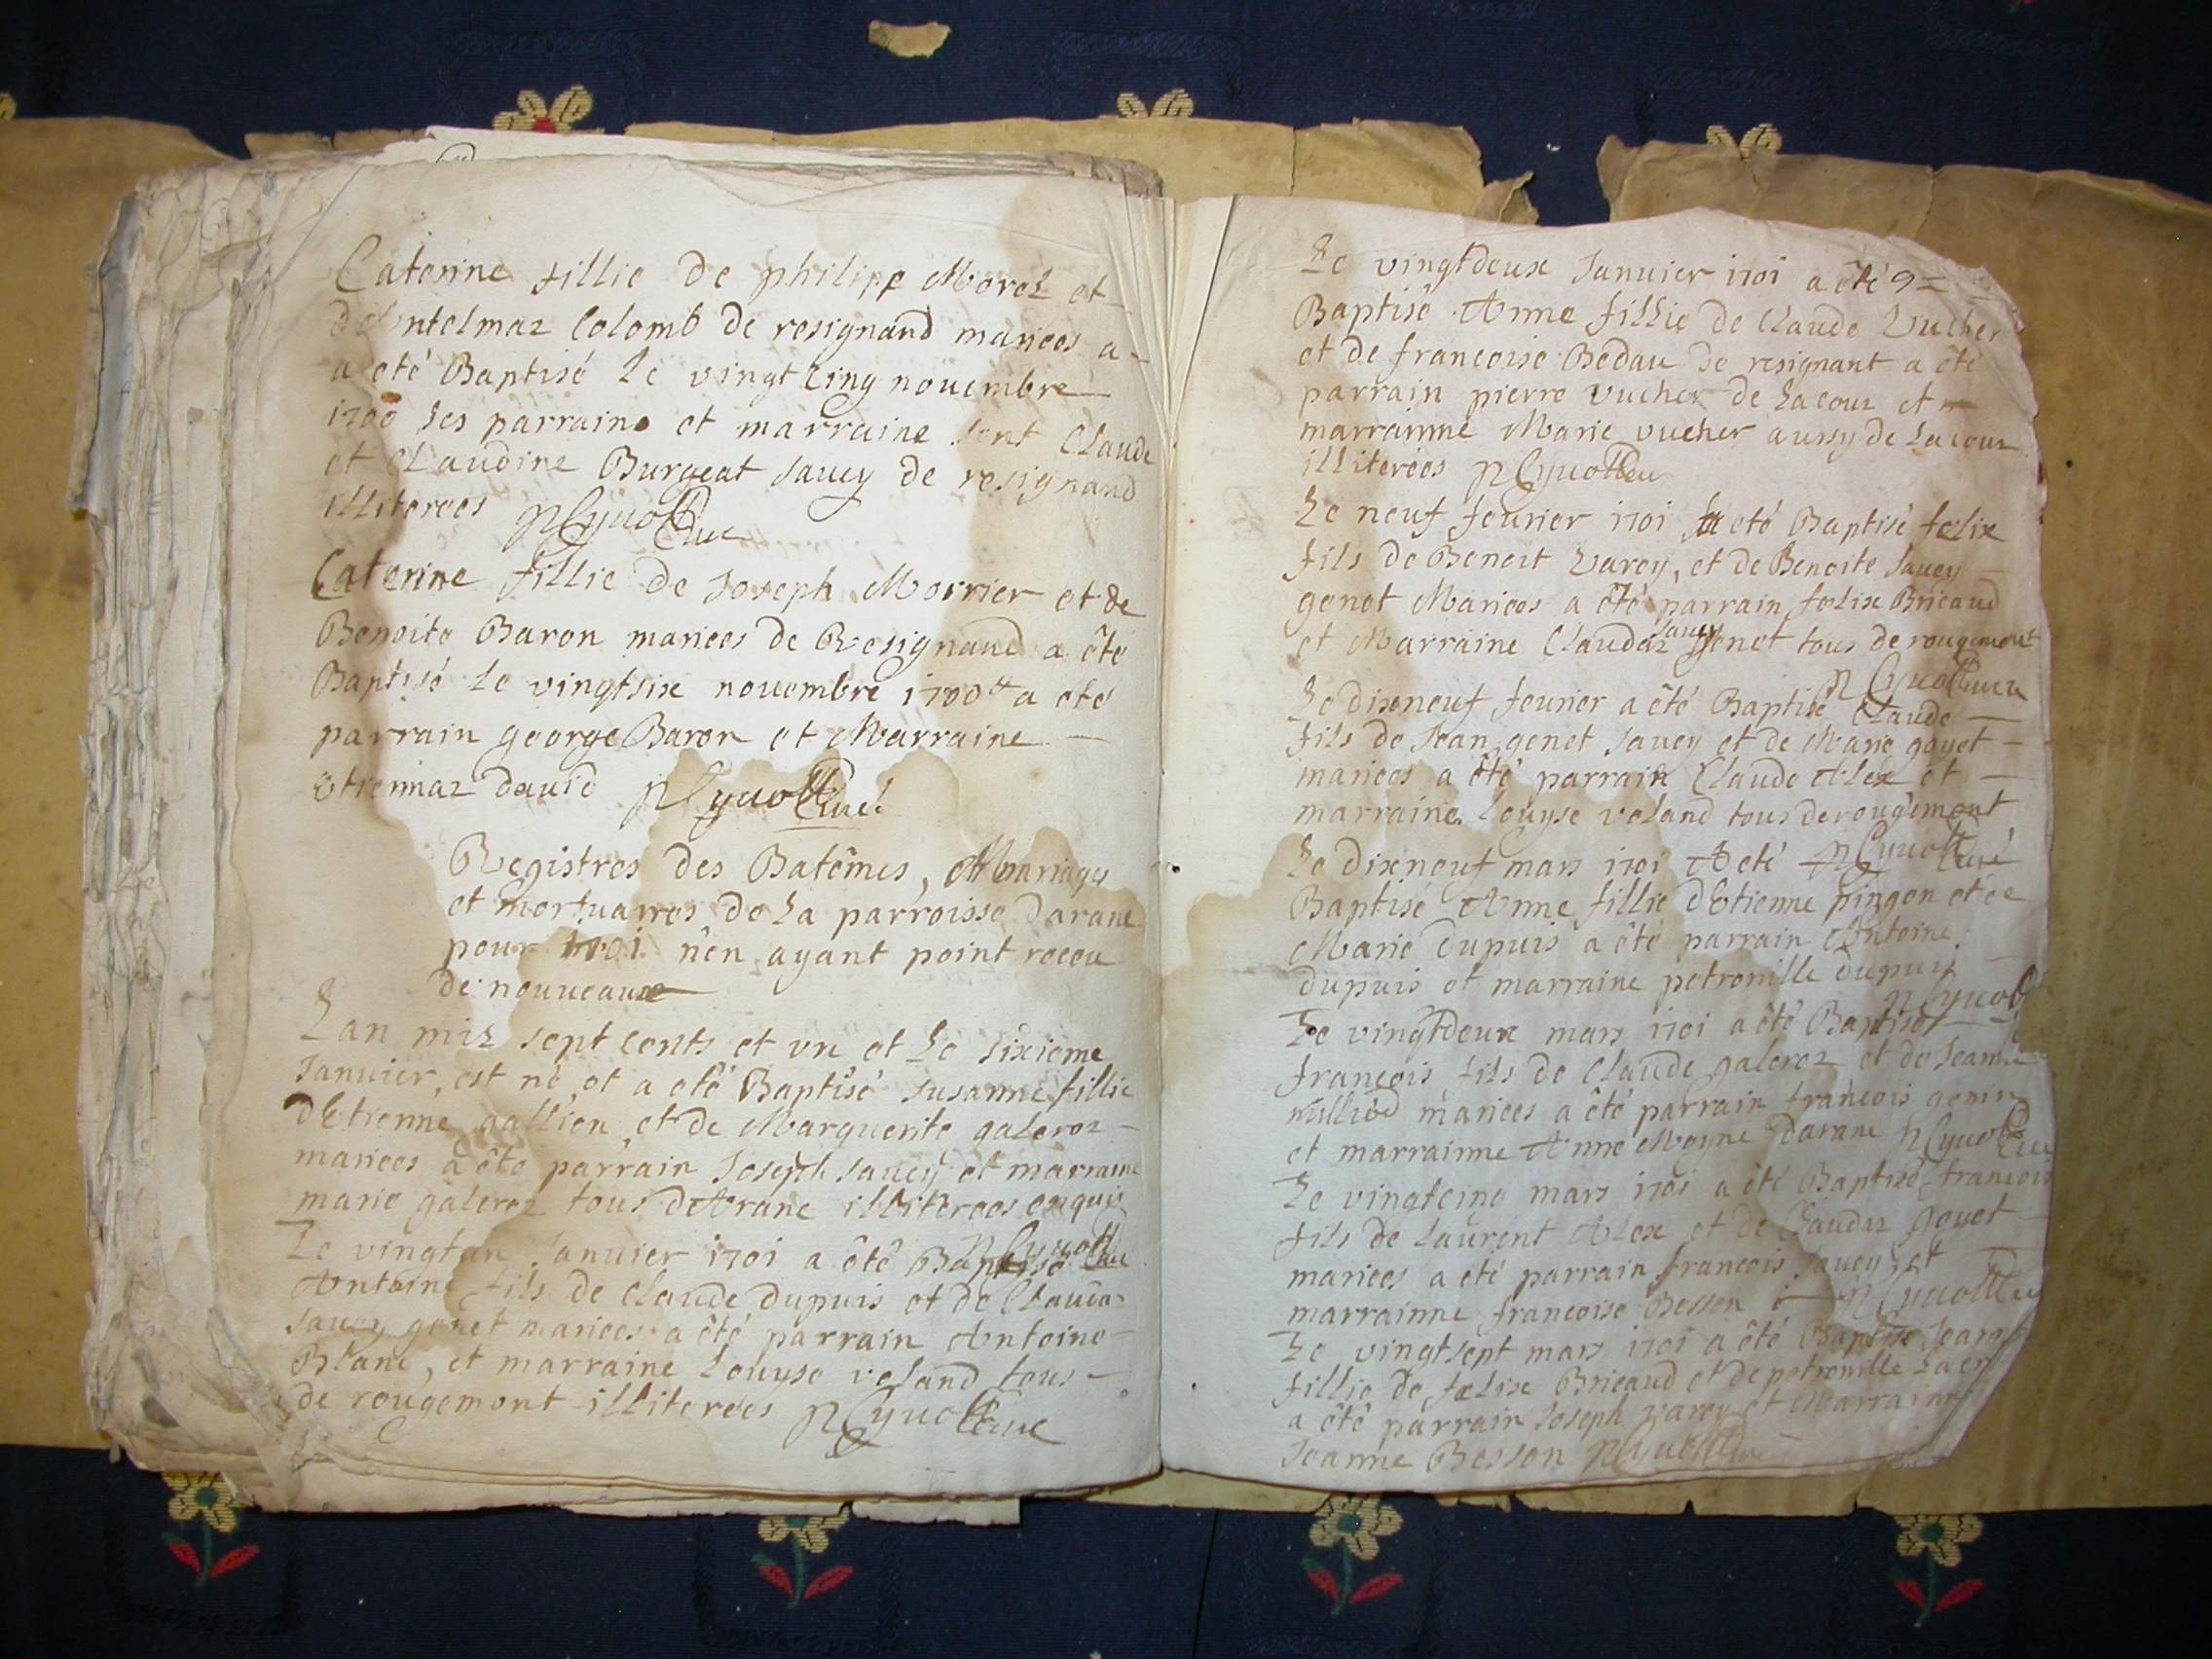 Caterine fillie de philipe Morel et
dAntelmaz Colomb de resignand mariees a
a eté Baptisé le vingt cinq nouembre
1700 ses parrains et marraine sont Claude
et Claudine Burgeat sauey de resignand
illiterees
Caterine fillie de Joseph Morrier et de
Benoite Baron mariees de Resignand a êté
Baptisé le vingtsix nouembre 1700 a eté
parrain george Baron et Marraine
Etiennaz dauid
Registres des Batêmes, Mariages
et mortuaires de la parroisse darane
pour 1701 n'en ayant point receu
de nouueaux
Lan mil sept cents et vn et le sixieme
Januier, est né et a eté Baptisé susanne fillie
dEtienne gallien et de Marguerite galeroz
mariees a êté parrain Joseph sauey et marraine
marie galeroz tous dArane illiterees enquis
Le vingtun Januier 1701 a êté Baptisé
Antoine fils de Claude dupuis et de Claudaz
sauey genet mariees a êté parrain Antoine
Blanc, et marraine Louyse voland tous
de rougemont illiterees
Le vingtdeux Januier 1701 a êté
Baptisé Anne fillie de Claude Vucher
et de francoise Bedau de resignant a êté
parrain pierre vucher de Lacour et
marrainne Marie vucher aussy de Lacour
illiterées
Le neuf feurier 1701 a eté Baptisé felix
fils de Benoit Varey, et de Benoite sauey
genet Mariees a êté parrain felix Bricaud
et Marraine Claudaz sauey genet tous de rougemont
Le dixneuf feurier a êté Baptisé Claude
fils de Jean genet sauey et de Marie goyet
mariees a êté parrain Claude Alex et
marraine Louyse voland tous de rougemont
Le dixneuf mars 1701 A eté
Baptisé Anne fillie dEtienne pingon et de
Marie dupuis a êté parrain Antoine
dupuis et marraine petronille dupuis
Le vingtdeux mars 1701 a êté Baptisé
francois fils de Claude galeroz et de Jeanne
milliod mariees a êté parrain francois genin
et marrainne Anne Moyne darane
Le vingtcinq mars 1701 a êté Baptisé francois
fils de Laurent Alex et de Claudaz genet
mariees a eté parrain francois sauey et
marrainne francoise Besson
Le vingtsept mars 1701 a êté Baptisé Jeanne
fillie de felix Bricaud et de petronille
a êté parrain Joseph varey et Marraine
Jeanne Besson